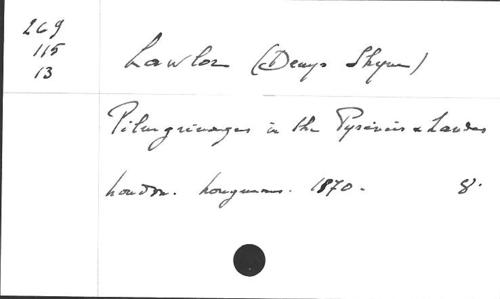 269
115
13
Lawlor (Denys Shyne)
Pilgrimages in the Pyrénées & Landes
London. Longmans. 1870. 8°.